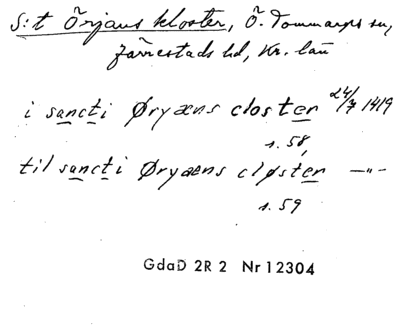 S:t Örjans kloster, Ö. Tommarps sn,
Järrestads hd, Kr. län
i sancti Øryæns closter 24/7 1419
s. 58,
til sancti Øryæns cløster —"—
s. 59
GdaD 2R 2 Nr 12304